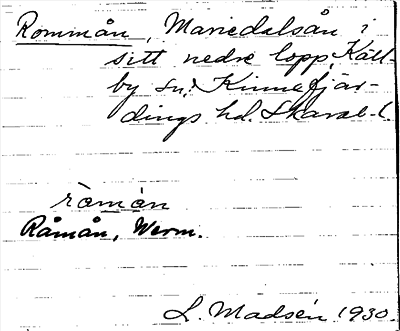 Rommån, Mariedalsån i
sitt nedre lopp, Käll-
by sn, Kinnefjär-
dings hd. Skarab. l.
ròmán
Råmån, Werm.
L. Madsén 1930.